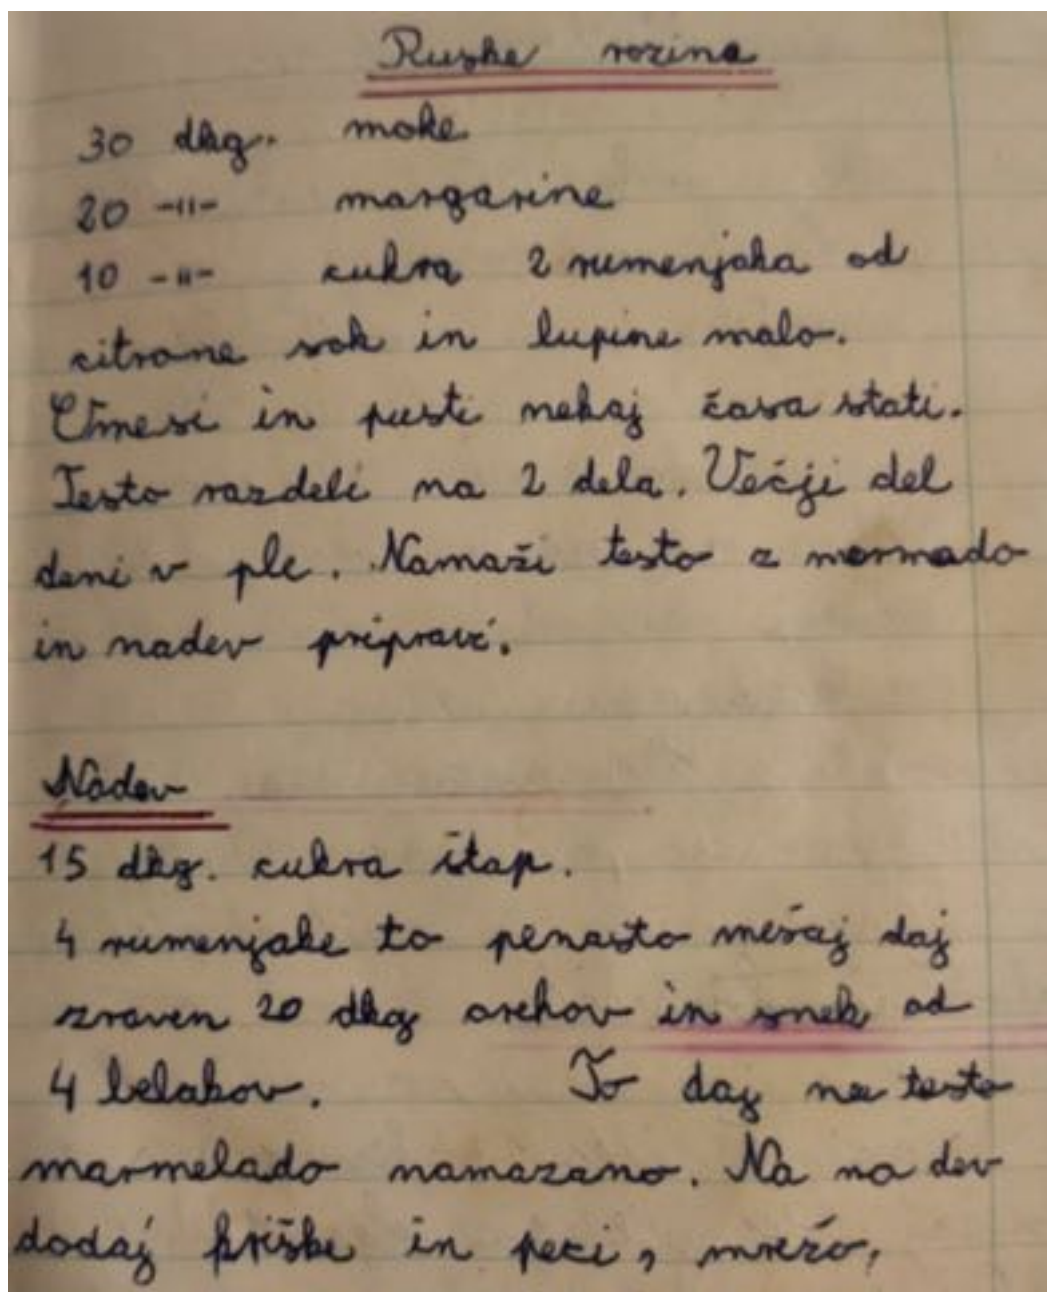 Ruske rozine
30 dkg. moke
20 -11- margarine
10 -11- cukra 2 rumenjaka od
citrone sok in lupine malo.
Umesi in pusti nekaj časa stati.
Testo razdeli na 2 dela. Večji del
deni v ple. Namaži testo z mermado
in nadev pripravi.
Nadev
15 dkg. cukra štap.
4 rumenjake to penasto mešaj daj
zraven 20 dkg orehov in snek od
4 belakov. To daj na testo
marmelado namazano. Na na dev
dodaj kriške in peci, mrežo,